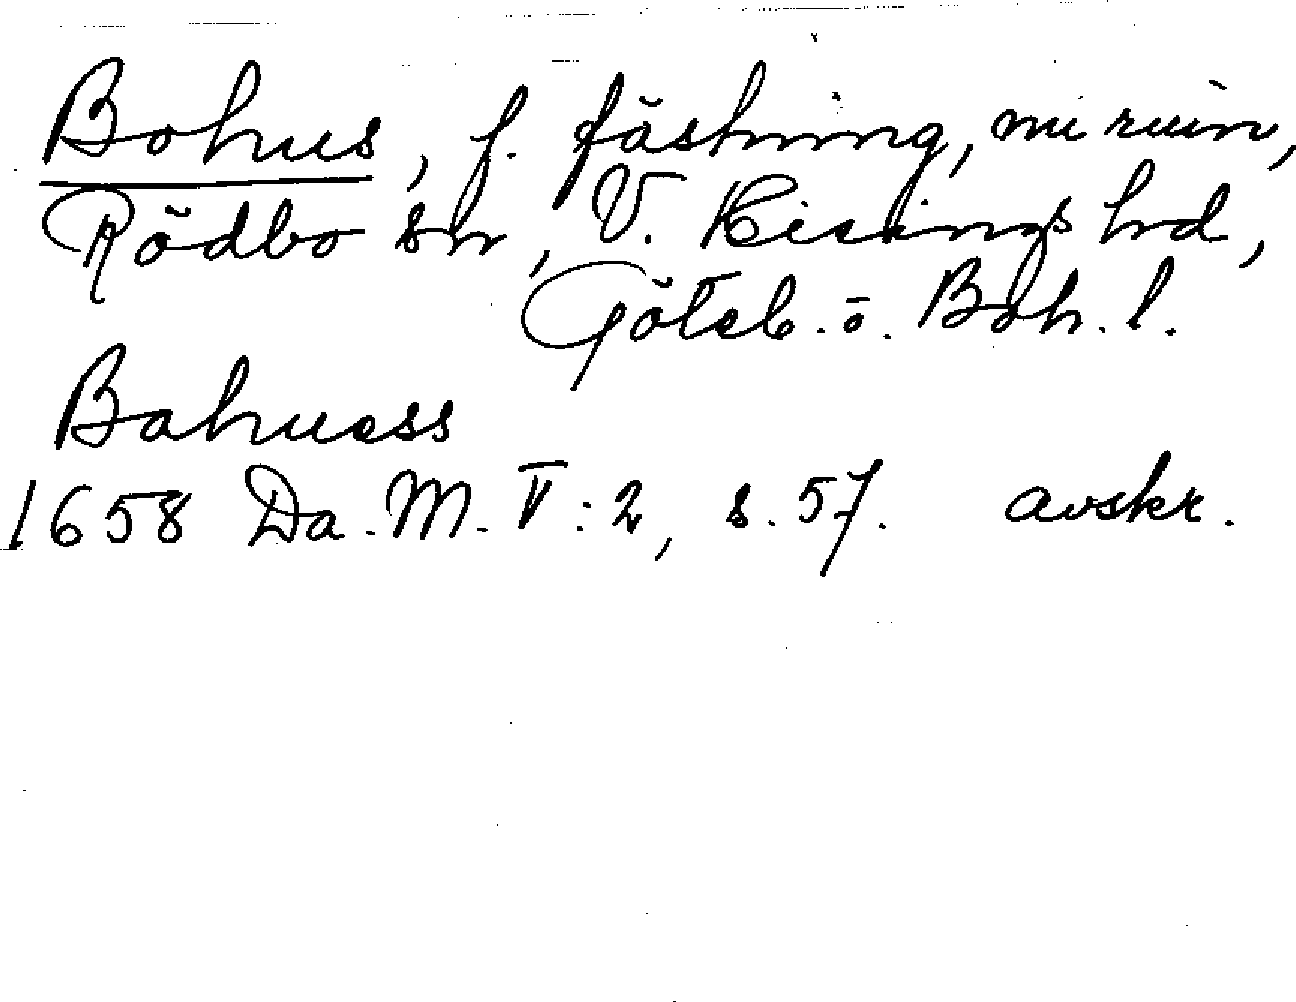 Bohus, f. fästning, nu ruin,
Rödbo sn, V. Hisings hd,
Göteb. o. Boh. l.
Bahuess
1658 Da. M. V:2, s. 57. avskr.